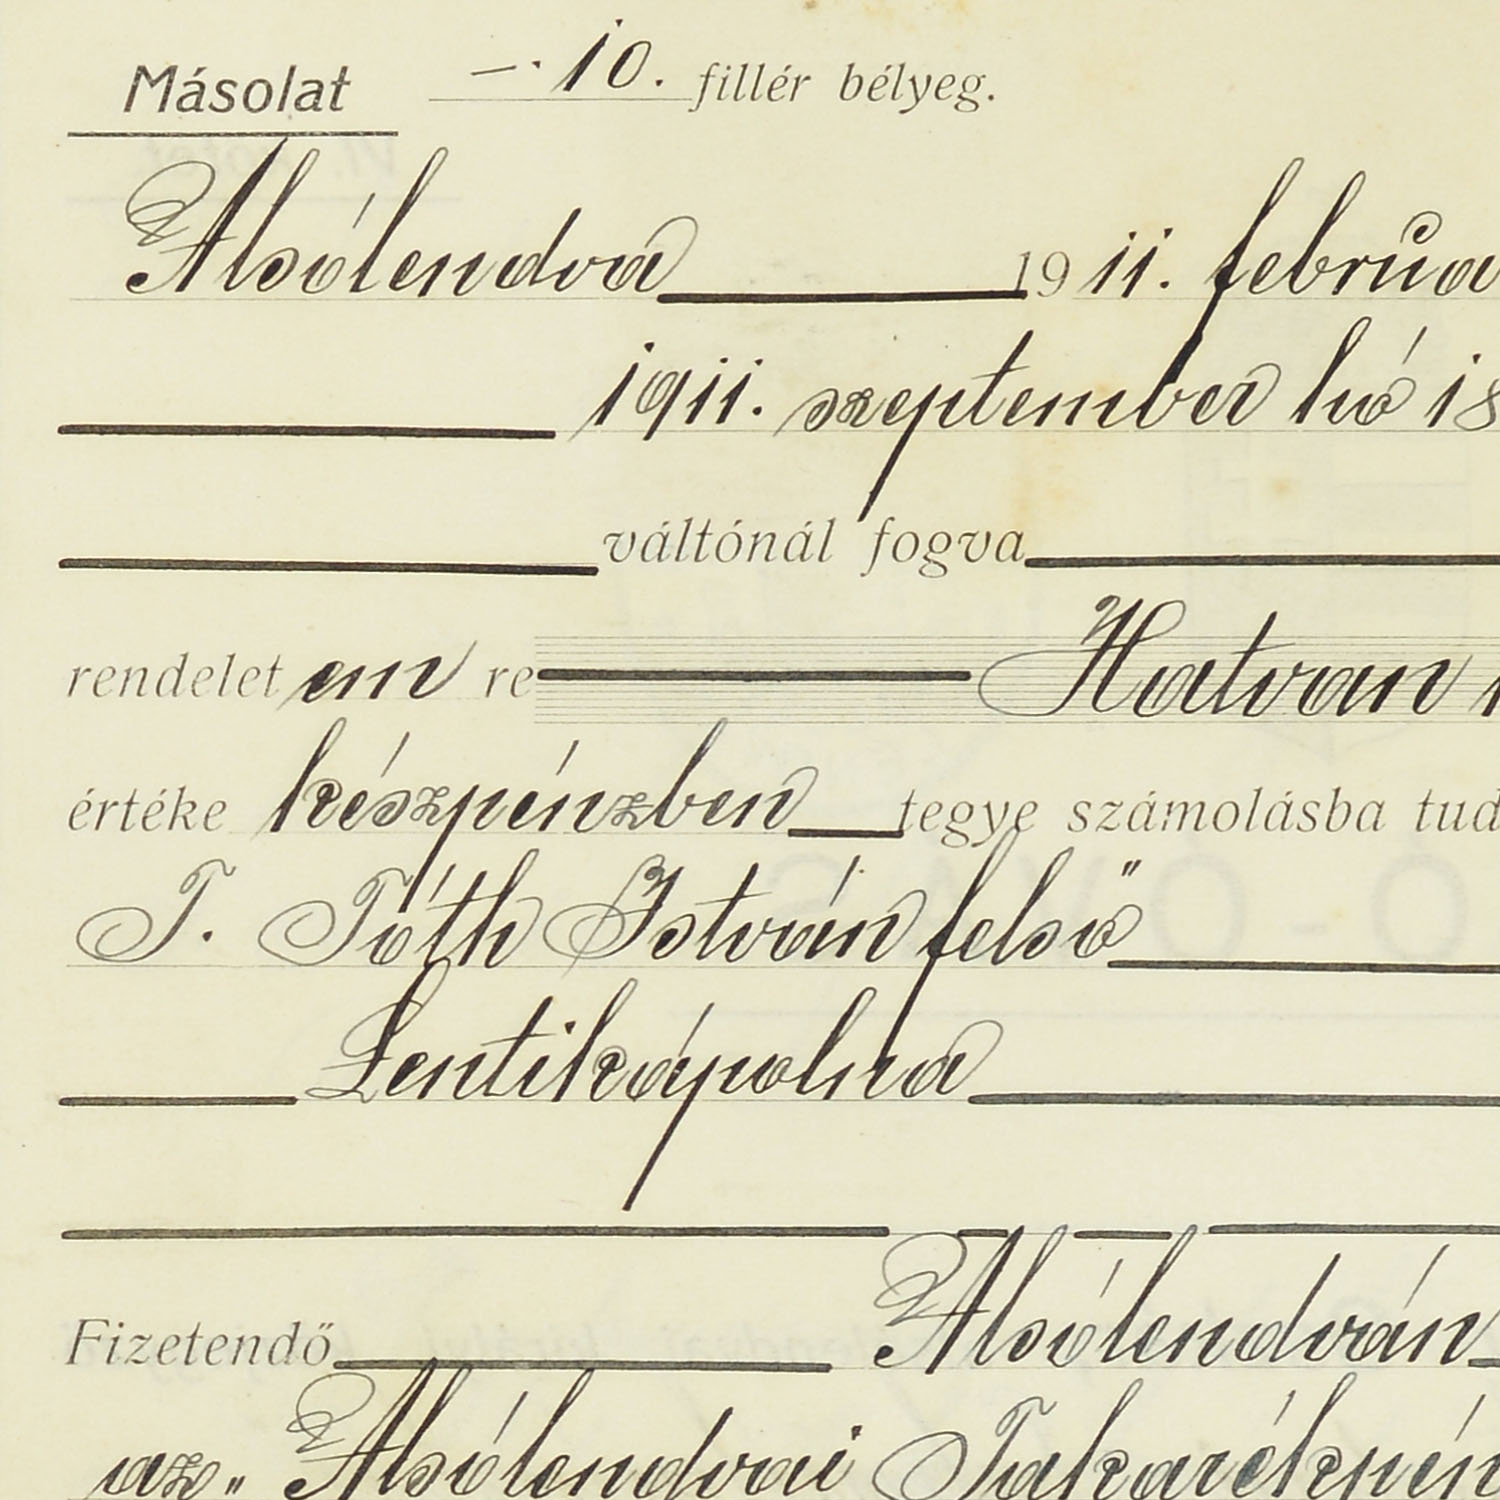 Másolat —·10. fillér bélyeg.
Alsólendva 1911. februa
1911. szeptember hó 18
váltónál fogva
rendelet em re Hatvan
értéke készpénzben tegye számolásba tud
T. Tóth István felső
Lentikápolna
Fizetendő Alsólendván
az „Alsólendvai Takarékpén